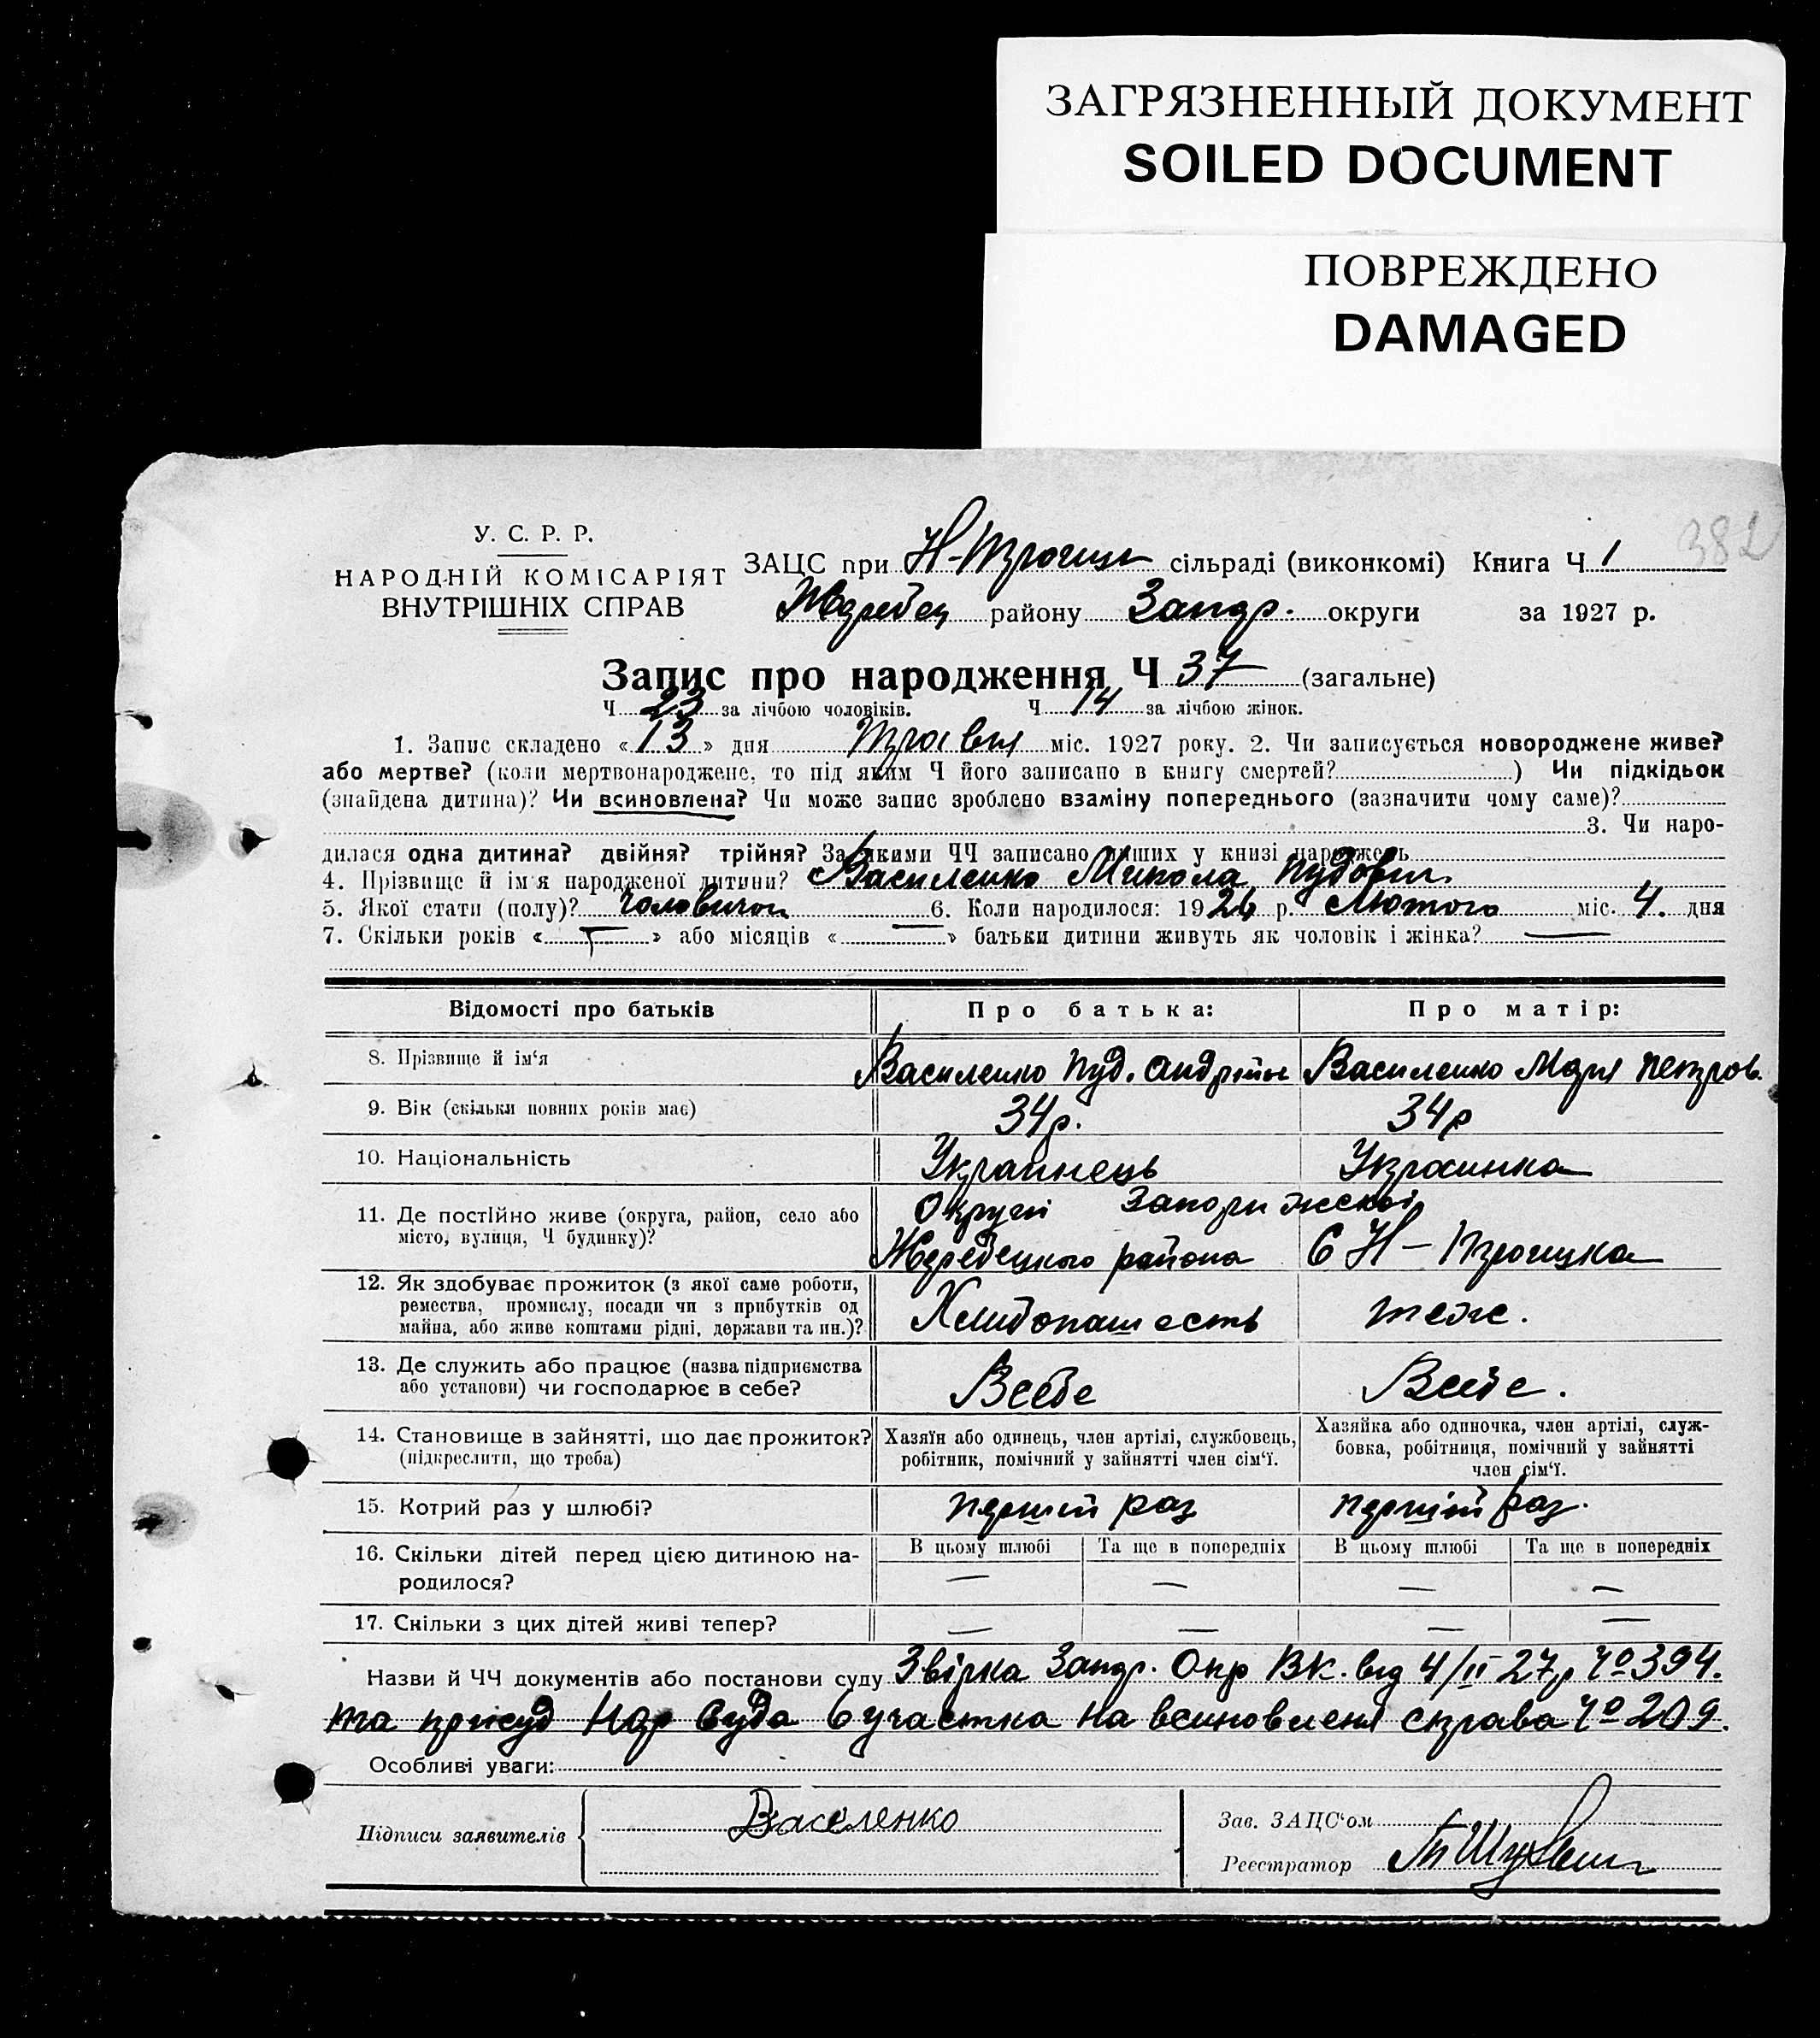 ЗАГРЯЗНЕННЫЙ ДОКУМЕНТ
SOILED DOCUMENT
ПОВРЕЖДЕНО
DAMAGED
382
У. С. Р. Р.
НАРОДНІЙ КОМІСАРІЯТ
ВНУТРІШНІХ СПРАВ
ЗАЦС при Н-Троицк сільраді (виконкомі) Книга Ч 1
Жеребец району Запор. округи за 1927 р.
Запис про народження Ч 37 (загальне)
Ч 23 за лічбою чоловіків. Ч 14 за лічбою жінок.
1. Запис складено «13» дня Травня міс. 1927 року. 2. Чи записується новороджене живе?
або мертве? (коли мертвонароджене, то під яким Ч його записано в книгу смертей? ) Чи підкідьок
(знайдена дитина)? Чи всиновлена? Чи може запис зроблено взаміну попереднього (зазначити чому саме)?
3. Чи наро-
дилася одна дитина? двійня? трійня? За якими ЧЧ записано інших у книзі народжень
4. Прізвище й ім'я народженої дитини? Василенко Микола Пудович
5. Якої стати (полу)? Чоловичой 6. Коли народилося: 1926 р. Лютого міс. 4. дня
7. Скільки років « » або місяців « » батьки дитини живуть як чоловік і жінка? —
Відомості про батьків Про батька: Про матір:
8. Прізвище й ім'я Василенко Пуд. Андрійов Василенко Мария Петров.
9. Вік (скільки повних років має) 34 р. 34 р
10. Національність Украинець Украинка
11. Де постійно живе (округа, район, село або Округи Запорижской
місто, вулиця, Ч будинку)? Жеребецкого района С Н-Троицка
12. Як здобуває прожиток (з якої саме роботи,
ремества, промислу, посади чи з прибутків од Хлибопашесть теж.
майна, або живе коштами рідні, держави та ин.)?
13. Де служить або працює (назва підприємства
або установи) чи господарює в себе? Всебе Всебе.
14. Становище в зайнятті, що дає прожиток? Хазяїн або одинець, член артілі, службовець, Хазяйка або одиночка, член артілі, служ-
(підкреслити, що треба) робітник, помічний у зайнятті член сім'ї. бовка, робітниця, помічний у зайнятті
член сім'ї.
15. Котрий раз у шлюбі? перший раз перший раз.
16. Скільки дітей перед цією дитиною на- В цьому шлюбі Та ще в попередніх В цьому шлюбі Та ще в попередніх
родилося? — — — —
17. Скільки з цих дітей живі тепер? — — — —
Назви й ЧЧ документів або постанови суду Звірка Запор. Окр ВК. від 4/II 27 р Ч° 394.
та присуд Нар Суда 6 участка на всиновленя справа Ч° 209.
Особливі уваги:
Підписи заявителів Василенко Зав. ЗАЦС'ом
Реєстратор